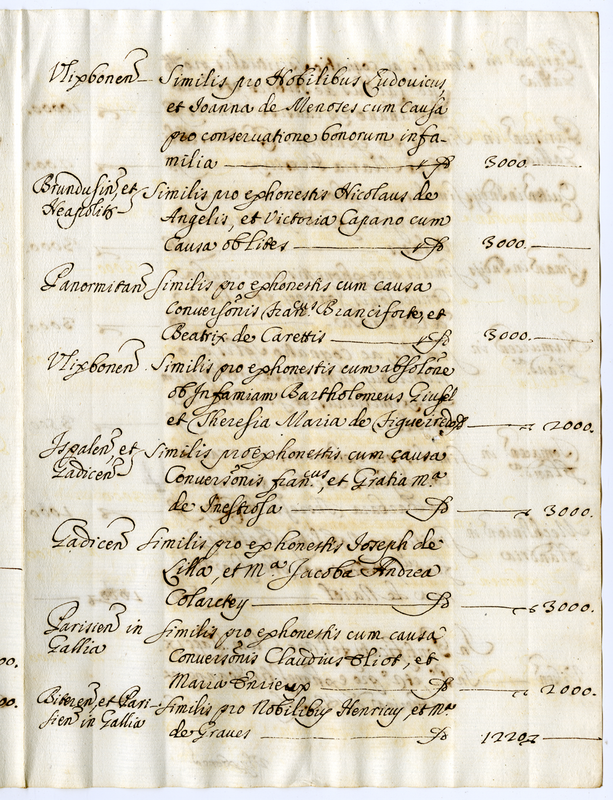 Vlixbonen̄ Similis pro Nobilibus Ludovicus
et Joanna de Meneses cum Causa
pro conservatione bonorum in fa-
milia 3000.
Brundusin̄, et Similis pro ex honestis Nicolaus de
Neapolit̄ Angelis, et Victoria Capano cum
Causa ob lites 3000.
Panormitan̄ Similis pro ex honestis cum causa
Conversōnis Branciforte, et
Beatrix de Carettis 3000.
Vlixbonen̄ Similis pro ex honestis cum absolōne
ob Infamiam Bartholomeus
et Theresia Maria de 2000.
Ispalen̄, et Similis pro ex honestis cum causa
Gadicen̄ Conversōnis Fran.cus, et Gratia M.a
de Inestrosa 3000.
Gadicen̄ Similis pro ex honestis Joseph de
Lilla, et M.a Jacoba Andrea
Colartey 3000.
Parisien̄ in Similis pro ex honestis cum causa
Gallia Conversōnis Claudius Eliot, et
Maria Enrieux 2000.
Biteren̄, et Pari- Similis pro Nobilibus Henricus, et M.a
sien̄ in Gallia de Graves 1220
00.
00.